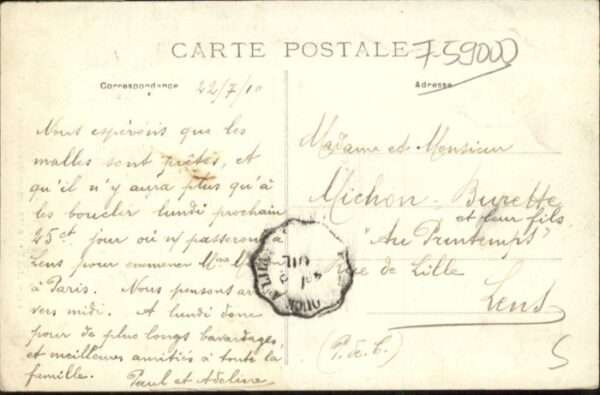 CARTE POSTALE
7-59000
Correspondance
22/7/10
Adresse
Nous espérons que les
malles sont prêtes, et
qu'il n'y aura plus qu'à
les boucler lundi prochain
25ct jour où n/ passerons à
Lens pour emmener Mme
à Paris. Nous pensons arr
vers midi. A lundi donc
pour de plus longs bavardages,
et meilleures amitiés à toute la
famille. Paul et Adeline
Madame et Monsieur
Michon-Burette
et leur fils
"Au Printemps"
Rue de Lille
Lens
(P. de C.)
5